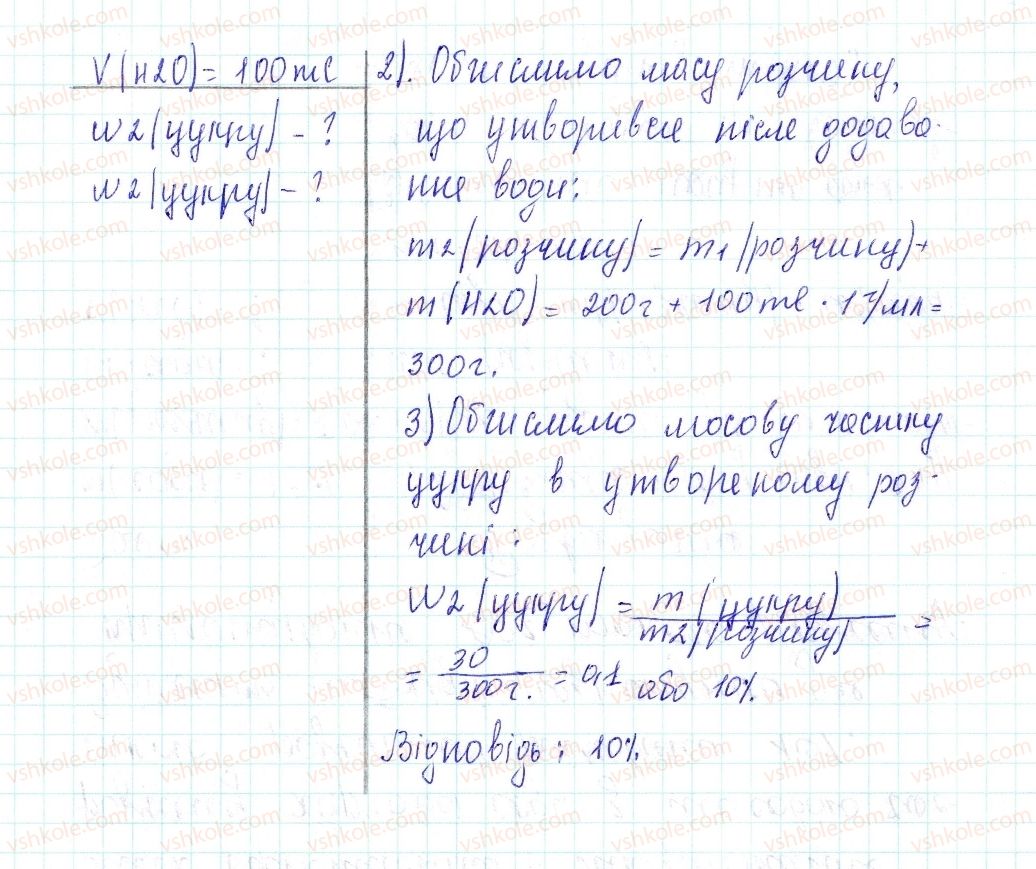 V(H2O) = 100ml
w2(цукру) - ?
w2(цукру) - ?
2). Обчислимо масу розчину,
що утворився після додава-
ння води:
m2(розчину) = m1(розчину) +
m(H2O) = 200г + 100ml · 1г/мл =
300г.
3) Обчислимо масову частку
цукру в утвореному роз-
чині:
W2(цукру) = m(цукру) / m2(розчину) =
= 30 / 300г. = 0,1 або 10%.
Відповідь: 10%.